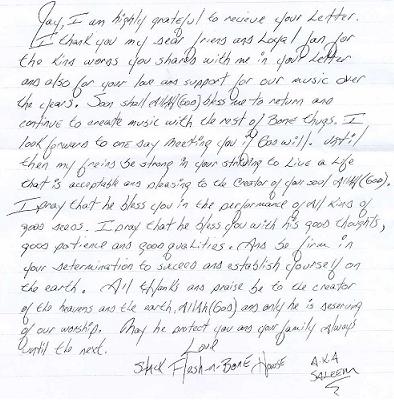 Jay, I am highly grateful to recieve your Letter.
I thank you my dear friend and Loyal fan for
the kind words you shared with me in your Letter
and also for your love and support for our music over
the years. Soon shall Allah(God) bless me to return and
continue to create music with the rest of Bone Thugs. I
look forward to one day meeting you if God will. Until
then my freind be strong in your striving to Live a Life
that is acceptable and pleasing to the Creator of your soul Allah(God).
I pray that he bless you in the performance of all kind of
good deeds. I pray that he bless you with his good thoughts,
good patience and good qualities. And be firm in
your determination to succeed and establish yourself on
the earth. All thanks and praise be to the creator
of the heavens and the earth, Allah(God) and only he is deserving
of our worship. May he protect you and your family always
until the next. Love
Flesh-n-Bone A.K.A
SALEEM